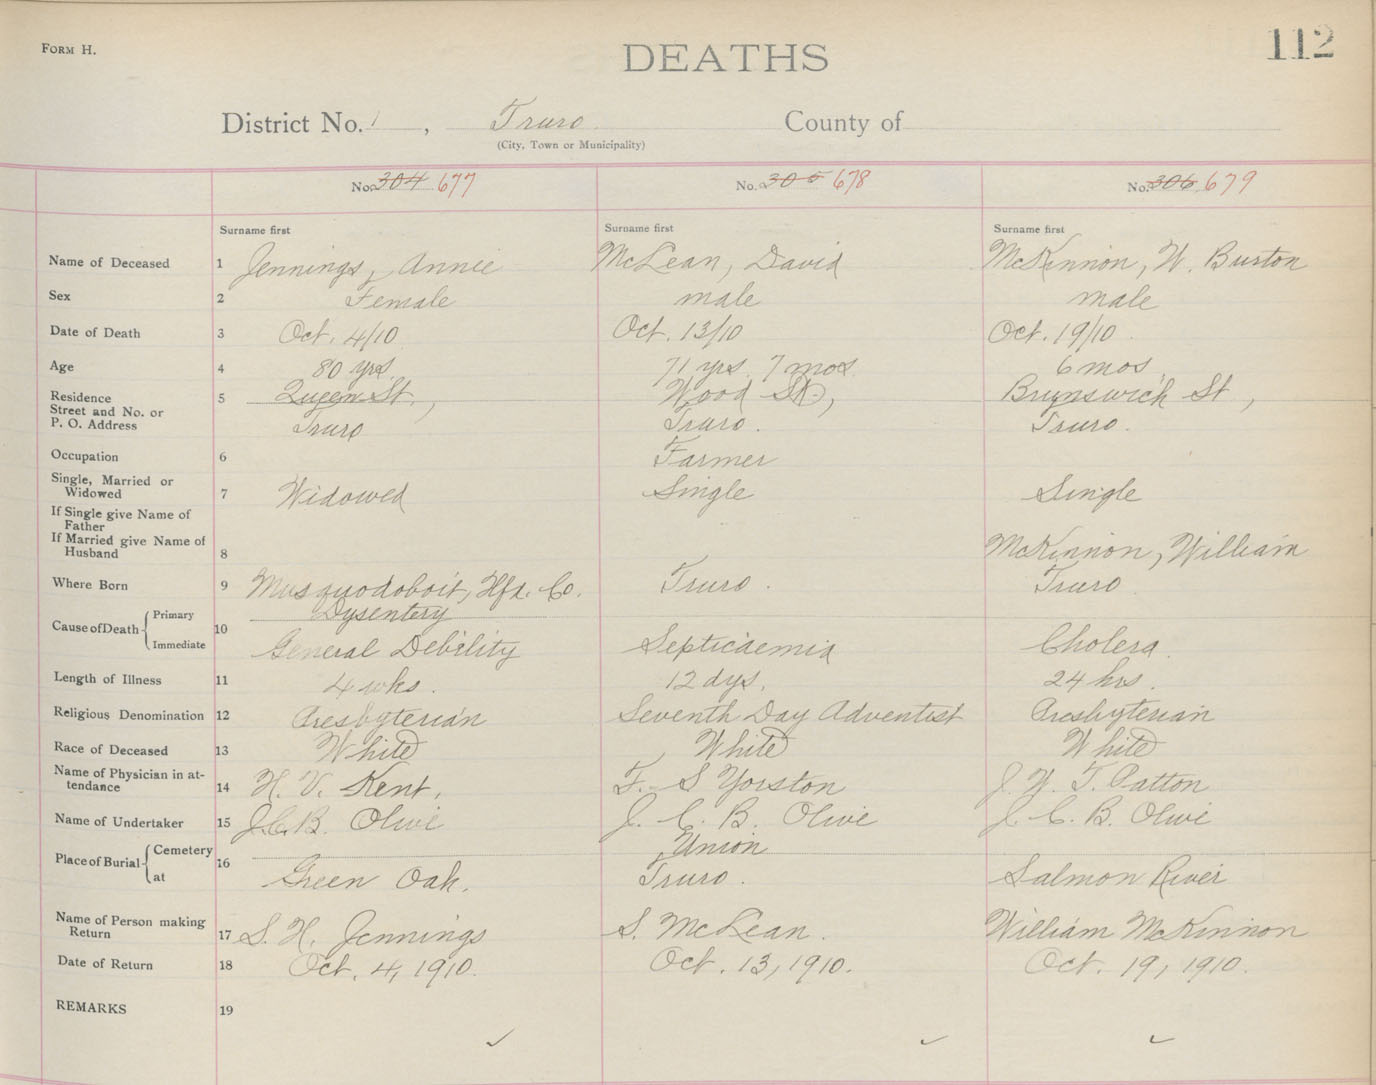 FORM H.
DEATHS
112
District No. 1, Truro County of
(City, Town or Municipality)
No. 304 677 No. 305 678 No. 306 679
Surname first Surname first Surname first
Name of Deceased 1 Jennings, Annie McLean, David McKinnon, W. Burton
Sex 2 Female male male
Date of Death 3 Oct. 4/10 Oct. 13/10 Oct. 19/10
Age 4 80 yrs. 71 yrs. 7 mos 6 mos
Residence 5 Queen St., Wood St., Brunswick St,
Street and No. or
P. O. Address Truro Truro. Truro.
Occupation 6 Farmer
Single, Married or
Widowed 7 Widowed Single Single
If Single give Name of
Father
If Married give Name of
Husband 8 McKinnon, William
Where Born 9 Musquodoboit, Hfx. Co. Truro. Truro
Cause of Death 10 Primary Dysentery
Immediate General Debility Septicaemia Cholera.
Length of Illness 11 4 wks. 12 dys. 24 hrs.
Religious Denomination 12 Presbyterian Seventh Day Adventist Presbyterian
Race of Deceased 13 White White White
Name of Physician in at-
tendance 14 H. V. Kent, F. S Yorston J. Y. T. Patton
Name of Undertaker 15 J.C.B. Olive J. C. B. Olive J. C. B. Olive
Place of Burial 16 Cemetery Union
at Green Oak. Truro. Salmon River
Name of Person making
Return 17 S. H. Jennings S. McLean. William McKinnon
Date of Return 18 Oct. 4, 1910. Oct. 13, 1910. Oct. 19, 1910.
REMARKS 19